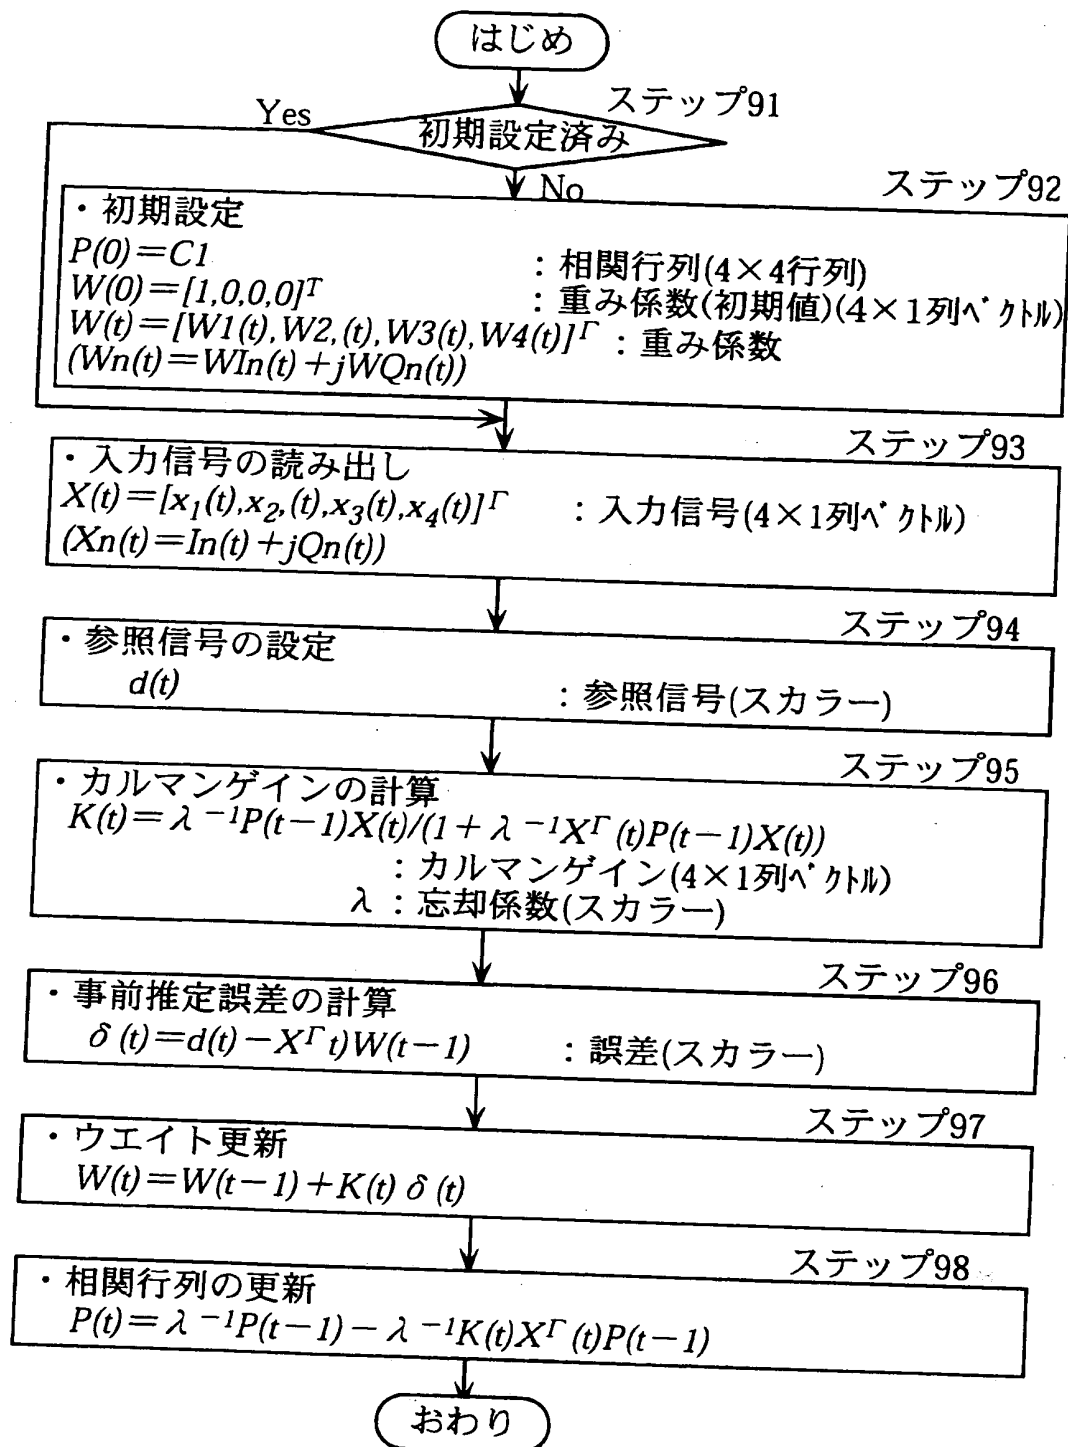 はじめ
ステップ91
Yes
初期設定済み
No
ステップ92
・初期設定
P(0)=C1 :相関行列(4×4行列)
W(0)=[1,0,0,0]T :重み係数(初期値)(4×1列ベクトル)
W(t)=[W1(t),W2,(t),W3(t),W4(t)]Γ :重み係数
(Wn(t)=WIn(t)+jWQn(t))
ステップ93
・入力信号の読み出し
X(t)=[x1(t),x2,(t),x3(t),x4(t)]Γ :入力信号(4×1列ベクトル)
(Xn(t)=In(t)+jQn(t))
ステップ94
・参照信号の設定
d(t) :参照信号(スカラー)
ステップ95
・カルマンゲインの計算
K(t)=λ−1P(t−1)X(t)/(1+λ−1XΓ(t)P(t−1)X(t))
:カルマンゲイン(4×1列ベクトル)
λ:忘却係数(スカラー)
ステップ96
・事前推定誤差の計算
δ(t)=d(t)−XΓt)W(t−1) :誤差(スカラー)
ステップ97
・ウエイト更新
W(t)=W(t−1)+K(t)δ(t)
ステップ98
・相関行列の更新
P(t)=λ−1P(t−1)−λ−1K(t)XΓ(t)P(t−1)
おわり